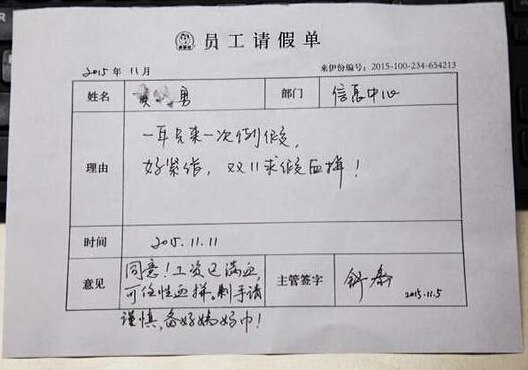 员工请假单
2015年11月
来伊份编号:2015-100-234-654213
姓名 勇 部门 信息中心
理由
一年只来一次例假,
好紧张,双11求假血拼!
时间 2015.11.11
意见
同意!工资已满血,
可任性血拼。剁手请
谨慎,备好姨妈巾!
主管签字
2015.11.5